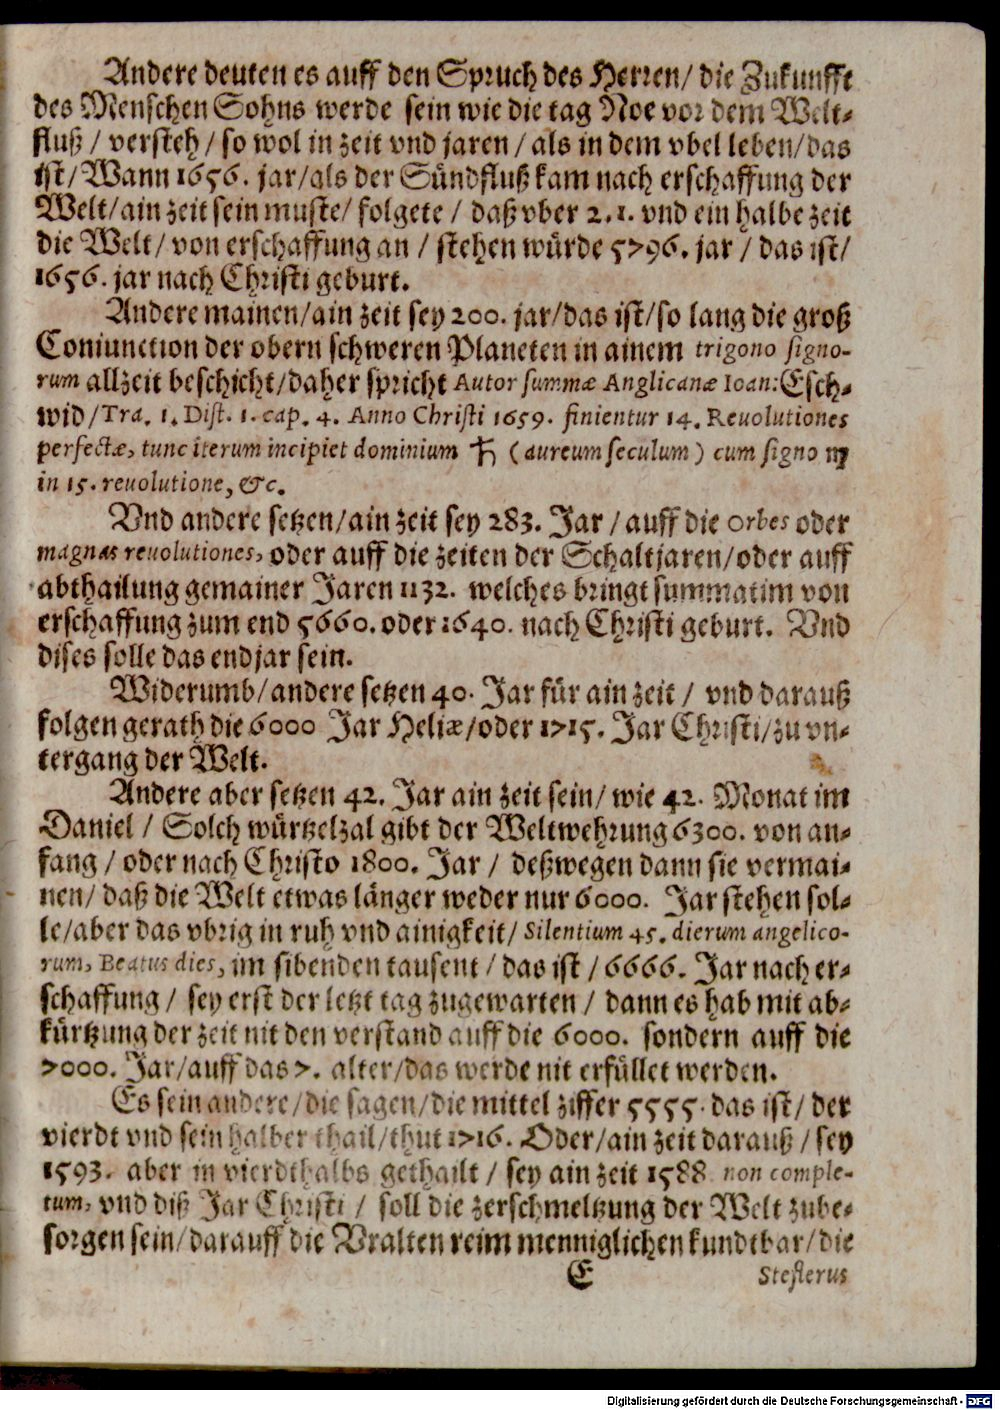 Andere deuten es auff den Spruch des Herren/ die Zukunfft
des Menschen Sohns werde sein wie die tag Noe vor dem Welt-
fluß / versteh / so wol in zeit vnd jaren / als in dem vbel leben/das
ist/ Wann 1656. jar/als der Sündfluß kam nach erschaffung der
Welt/ain zeit sein muste/ folgete / daß vber 2. 1. vnd ein halbe zeit
die Welt/ von erschaffung an / stehen würde 5796. jar / das ist/
1656. jar nach Christi geburt.
Andere mainen/ain zeit sey 200. jar/das ist/so lang die groß
Coniunction der obern schweren Planeten in ainem trigono signo-
rum allzeit beschicht/daher spricht Autor summæ Anglicanæ Ioan: Esch-
wid/Tra. 1. Dist. 1. cap. 4. Anno Christi 1659. finientur 14. Reuolutiones
perfectæ, tunc iterum incipiet dominium ♄ (aureum seculum) cum signo ♏
in 15. reuolutione, &c.
Vnd andere setzen/ain zeit sey 283. Jar / auff die orbes oder
magnas reuolutiones, oder auff die zeiten der Schaltjaren/oder auff
abthailung gemainer Jaren 1132. welches bringt summatim von
erschaffung zum end 5660. oder 1640. nach Christi geburt. Vnd
dises solle das endjar sein.
Widerumb/andere setzen 40. Jar für ain zeit / vnd darauß
folgen gerath die 6000 Jar Heliæ/oder 1715. Jar Christi/zu vn-
tergang der Welt.
Andere aber setzen 42. Jar ain zeit sein/ wie 42. Monat im
Daniel / Solch würtzelzal gibt der Weltwehrung 6300. von an-
fang / oder nach Christo 1800. Jar / deßwegen dann sie vermai-
nen/ daß die Welt etwas länger weder nur 6000. Jar stehen sol-
le/aber das vbrig in ruh vnd ainigkeit/ Silentium 45. dierum angelico-
rum, Beatus dies, im sibenden tausent / das ist / 6666. Jar nach er-
schaffung / sey erst der letzt tag zugewarten / dann es hab mit ab-
kürtzung der zeit nit den verstand auff die 6000. sondern auff die
7000. Jar/auff das 7. alter/das werde nit erfüllet werden.
Es sein andere/die sagen/die mittel ziffer 5555. das ist/ der
vierdt vnd sein halber thail/thut 1716. Oder/ain zeit darauß / sey
1593. aber in vierdthalbs gethailt / sey ain zeit 1588 non comple-
tum, vnd diß Jar Christi / soll die zerschmeltzung der Welt zube-
sorgen sein/darauff die Vralten reim menniglichen kundtbar/die
E Stesterus
Digitalisierung gefördert durch die Deutsche Forschungsgemeinschaft - DFG